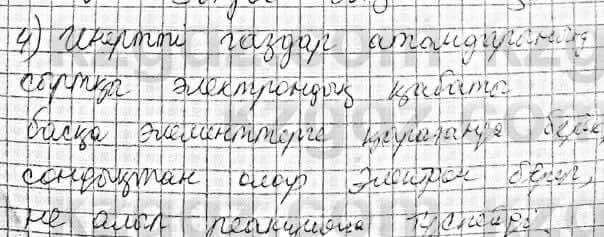 4) Инертті газдар атомдарының
сыртқы электрондық қабаты
басқа элементтерге қарағанда берік,
сондықтан олар электрон беріп,
не алып реакцияға түспейді